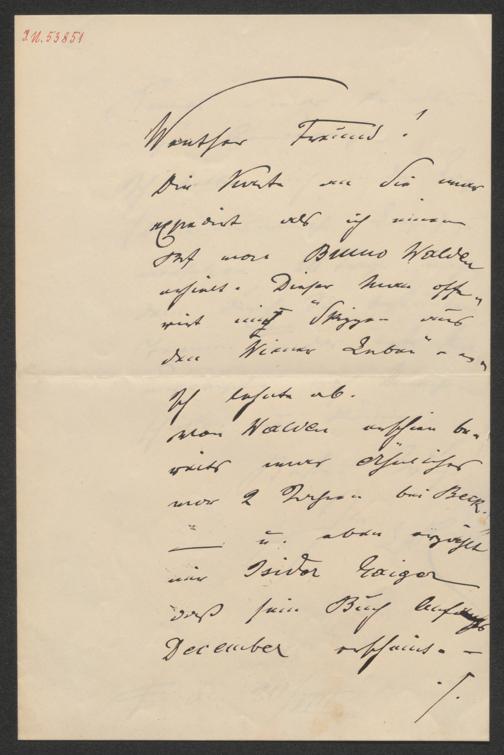 J.N. 53851
Werther Freund!
Die Karte an Sie war
expedirt als ich einen
Brief von Bruno Walden
erhielt. Dieser Herr offe-
rirt mir "Skizzen aus
dem Wiener Leben" -
Ich lehnte ab.
Von Walden erschien be-
reits etwas ähnliches
vor 2 Jahren bei Beck.
— u. eben erzählt
mir Isidor Gaiger
daß sein Buch Anfangs
December erscheint. —